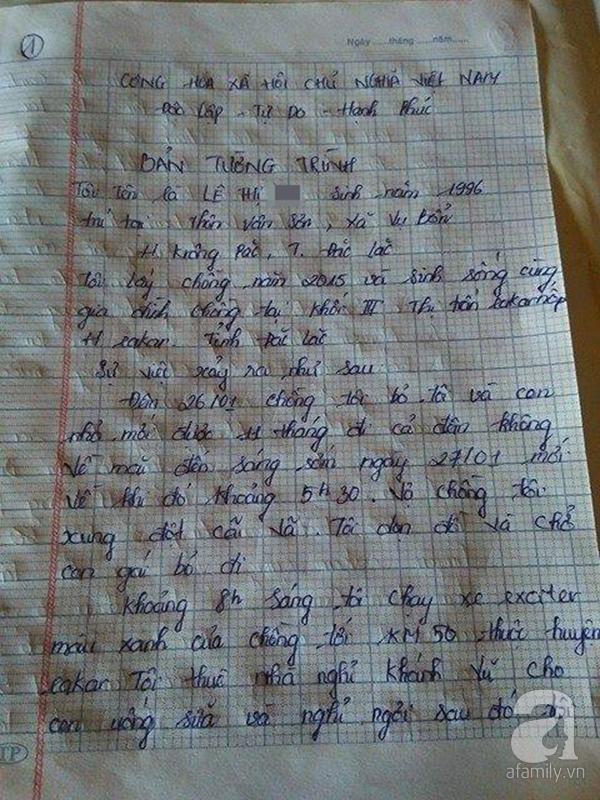 1
Ngày ..... tháng ..... năm .....
CỘNG HÒA XÃ HỘI CHỦ NGHĨA VIỆT NAM
Độc lập - Tự Do - Hạnh Phúc
BẢN TƯỜNG TRÌNH
Tôi tên là LÊ THỊ sinh năm 1996
trú tại: thôn Vân Sơn, xã Vụ Bổn
H Krông Pắc, T. Đắc Lắc
Tôi lấy chồng năm 2015 và sinh sống cùng
gia đình chồng tại khối III Thị trấn eakanốp
H eakar. Tỉnh Đắc Lắc
Sự việc xảy ra như sau
Đêm 26/01 chồng tôi bỏ tôi và con
nhỏ mới được 11 tháng đi cả đêm không
về mãi đến sáng sớm ngày 27/01 mới
về khi đó khoảng 5h30. Vợ chồng tôi
xung đột cãi vã. Tôi dọn đồ và chở
con gái bỏ đi
Khoảng 8h sáng tôi chạy xe exciter
màu xanh của chồng tới KM 50 thuộc huyện
eakar Tôi thuê nhà nghỉ Khánh Vũ cho
con uống sữa và nghỉ ngơi sau đó
TP
a
afamily.vn